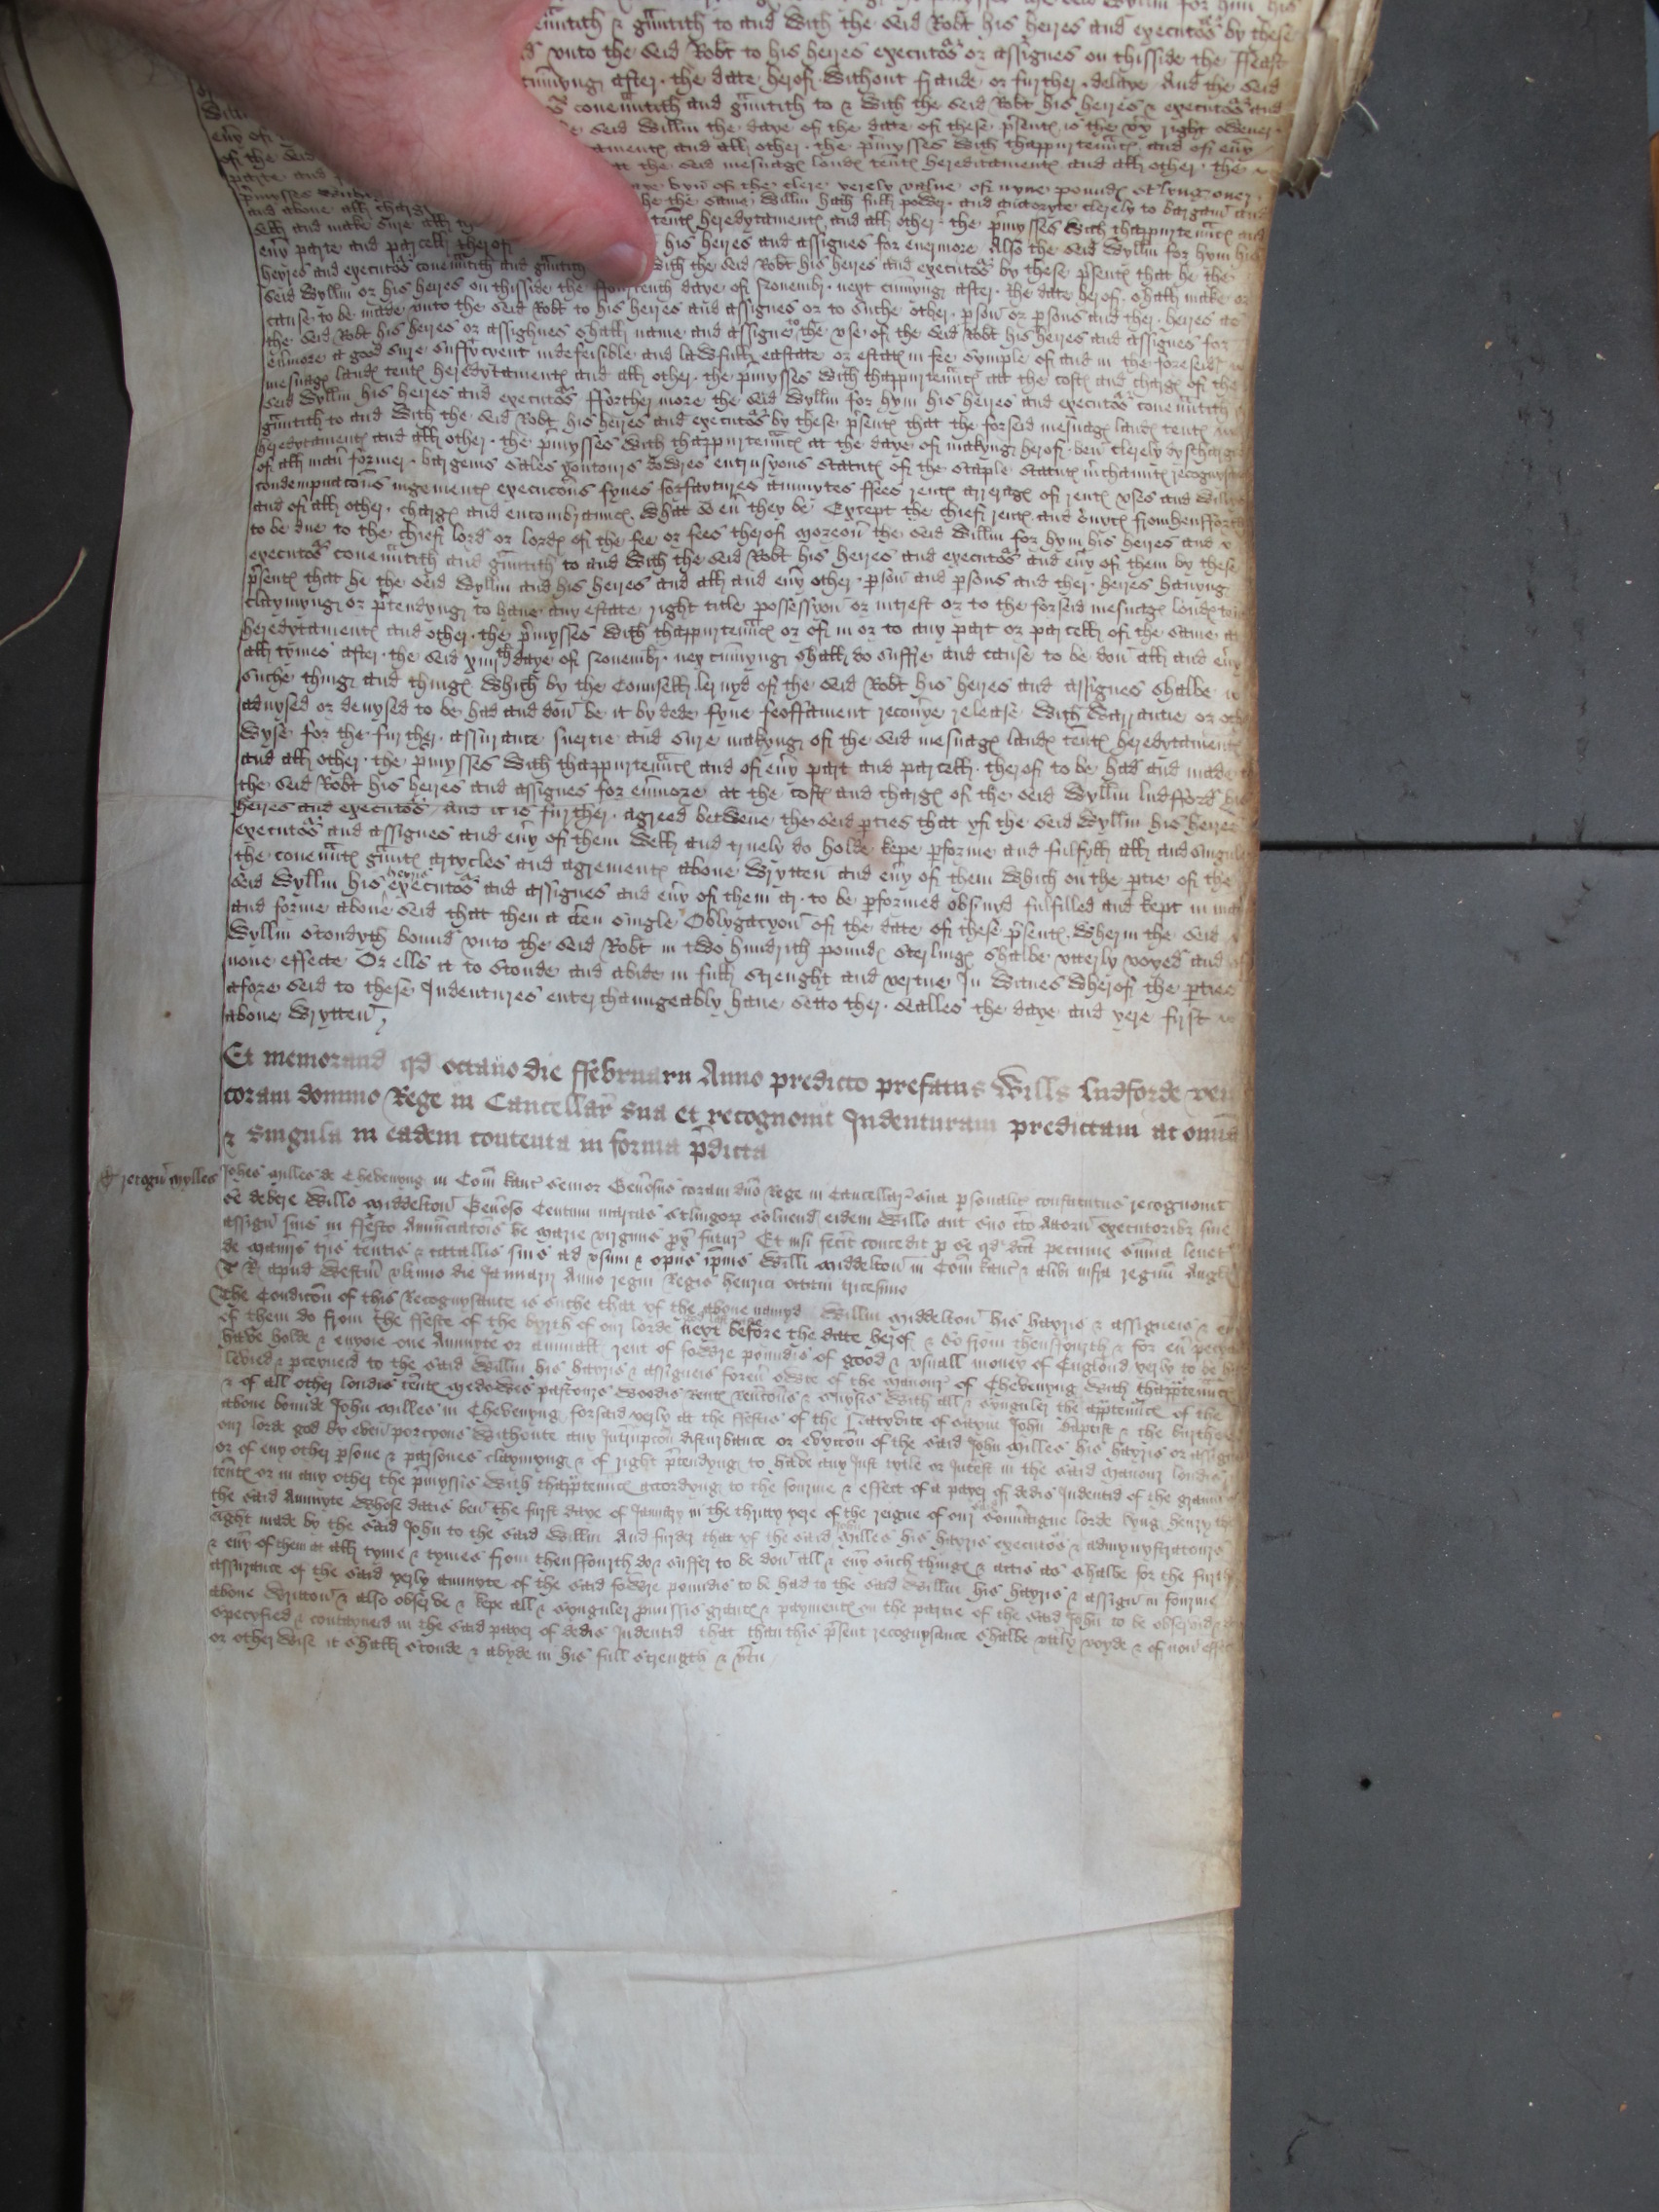 the seid Wyllm for hym his
coṽnntith & gũntith to and with the seid Robt his heires and executoʳs by these
vnto the seid Robt to his heires executoʳs or assignes on thisside the ffeast
cũmyng after the date herof without fraude or further delaye And the seid
coueñntith and gũntith to & with the seid Robt his heires & executoʳs and
seid Willm the daye of the date of these p̃sentꝭ is the v̓y right owener
eṽy of and all other the p̃mysses with thappurteñncꝭ and of eṽy
of the seid at the seid mesuagꝭ londꝭ teñtꝭ hereditamentꝭ and all other the
parte and of the clere yerely value of nyne poundꝭ st̓lyng ouer
p̃mysses he the same Willm hath full power and auctoryte clerely to bargañ and
and aboue all charg teñtꝭ heredytamentꝭ and all other the p̃mysses with thappurteñncꝭ and
sell and make sure all his heires and assignes for euermore Also the seid Wyllm for hym his
eṽy parte and parcell therof with the seid Robt his heires and executoʳs by these p̃sentꝭ that he the
heyres and executoʳs coueñntith and gũntith
seid Wyllm or his heires on thisside the fourtenth daye of Nouembr next cũmyng after the date herof shall make or
cause to be made vnto the seid Robt to his heires and assignes or to suche other p̱son or p̱sons and ther heires as
the seid Robt his heires or assighnes shall name and assigne to the vse of the seid Robt his heires and assignes for
eũmore a good sure suffycyent indefeisible and lawfull eastate or estatꝭ in fee symple of and in the foreseid
mesuagꝭ landꝭ tentꝭ heredytamentꝭ and all other the p̃mysses with thappurteñncꝭ att the costꝭ and chargꝭ of the
seid Wyllm his heires and executoʳs fforther more the seid Wyllm for hym his heires and executoʳs coueñntith
gũntith to and with the seid Robt his heires and executoʳs by these p̃sentꝭ that the forseid mesuagꝭ landꝭ tentꝭ
heredytamentꝭ and all other the p̃mysses with thappurteñncꝭ at the daye of makyng herof ben clerely dyscharged
of all mañ former bargeins sales yointours dowres entrusyons statutꝭ of the staple statutꝭ m̓chauntꝭ
condempnacõns iugementꝭ execucõns fynes forfaytures annuytes ffees rentꝭ arreragꝭ of rentꝭ vses and willys
and of all other chargꝭ and encombrauncꝭ what soeũ they be Except the chief rentꝭ and s̓uycꝭ fromhensfforth
to be due to the chief lord or lordꝭ of the fee or fees therof Moreoũ the seid Willm for hym his heires and
executoʳs coueñntith and gũntith to and with the seid Robt his heires and executoʳs and eṽy of them by these
p̃sentꝭ that he the seid Wyllm and his heires and all and eṽy other p̱son and p̱sons and ther heires hauyng
claymyng or p̃tendyng to haue any estate right title possessyon or intrest or to the forseid mesuagꝭ londꝭ
heredytamentꝭ and other the p̃mysses with thappurteñncꝭ or of in or to any part or parcell of the same
all tymes after the seid xiiijᵗʰ daye of Nouembr nex cũmyng shall do suffre and cause to be don all and eṽy
suche thing and thingꝭ which by the Counsell lernyd of the seid Robt his heires and assignes shalbe
aduysed or deuysed to be had and don be it by dede fyne feoffament recoũye relesse with warrantie or oth
wyse for the further assurance suertie and sure makyng of the seid mesuagꝭ landꝭ tentꝭ heredytamentꝭ
and all other the p̃mysses with thappurteñncꝭ and of eṽy part and parcell therof to be had and made
the seid Robt his heires and assignes for eũmore at the costꝭ and chargꝭ of the seid Wyllm ludfford his
heires and executoʳs And it is further agreed betwene the seid p̱ties that yf the seid Wyllm his heires
executoʳs and assignes and eṽy of them well and truely do holde kepe p̱forme and fulfyll all and singuler
the coueñntꝭ gũntꝭ artycles and agrementꝭ aboue wrytten and eṽy of them which on the p̱tie of the
seid Wyllm his heyrs executoʳs and assignes and eṽy of them ar to be p̱formed obs̓uyd fulfilled and kept in
and forme aboue seid that then a sson single Oblygacyon of the date of these p̃sentꝭ wherin the seid
Wyllm stondyth bound vnto the seid Robt in two hundrith poundꝭ sterlingꝭ shalbe vtterly voyed and of
none effecte Or ells it to stonde and abide in full strenght and vertue In witnes wherof the p̱ties
afore seid to these Indentures enterchaungeably haue setto ther sealles the daye and yere first
aboue wrytten
Et memorand qd octauo die ffebruarii Anno predicto prefatus Wills ludforde ven
coram domino Rege in Cancellar̃ sua et recognouit Indenturam predictam ac om̃ia
& singula in eadem contenta in forma p̃dicta
recogñ Mylles Iohes Milles de Chevenyng in Com̃ kanc̓ senior Geñosus coram dño Rege in Cancellar̃ sua p̱sonalit̓ constitutus recognouit
se debere Willo Middelton Geñoso Centum marcas st̓lingoꝝ soluend eidem Willo aut suo c̓to Attorñ executoribꝫ siue
assigñ suis in ffesto Annũciacõis be Marie virginis p̱x̓ futur̃ Et nisi fecit concedit p̱ se qd dcã pecunie sum̃a leuet̓
de Mañijs tris teñtis & catallis suis ad vsum & opus ip̃ius Willi Middelton in Com̃ kanc̓ & alibi infra regnũ Angl
T R apud Westm̃ vltimo die Januarij Anno regni Regis henrici octaui tricesimo
The Condicõn of this Recognysance is suche that yf the aboue namyd Willm Middelton his hayris & assigneis & eṽy
of them do from the ffeste of the byrth of our lorde god last past next before the date herof & so from thensfourth & for eũ
have holde & enyoie one Annuyte or annuall rent of fowre poundis of good & vsuall money of Englond yerly to be
levied & p̱ceyueid to the said Willm his hayris & assigneis foreũ owte of the Manour of Chevenyng with thapp̱teñncꝭ
& of all other londis teñtꝭ medowes pastours woodis Rentꝭ Reũcõns & s̓uysis with all & synguler the app̱teñncꝭ of the
aboue bounde John Milles in Chevenyng forsaid yerly at the ffestis of the Natyvite of saynt John Baptist & the birthe of
our lorde god by even porcyons withoute any Int̓rupcõn disturbance or evyccõn of the said John Milles his hayris or assignes
or of eny other p̱sone & parsones claymyng & of right p̃tendyng to have any Just tytle or Int̓est in the said Manour londis
teñtꝭ or in any other the p̃myssis with thapp̱teñncꝭ accordyng to the fourme & effect of a payer of dedis Indentid of the graunt of
the said Annuyte whose datis ben the first daye of January in the thirty yere of the reigne of our said soũaigne lorde kyng henry the
eight made by the said John to the said Willm And furder that yf the said John Milles his hayris executoʳs & admynystratours
& eṽy of them at all tyme & tymes from thensffourth do & suffer to be don all & eṽy such thingꝭ & actis as shalbe for the furth
assurance of the said yerly annuyte of the said fowre poundis to be had to the said Willm his hayris & assigñ in fourme
aboue written & also observe & kepe all & synguler p̱missis grantꝭ & paymentꝭ on the partie of the said John to be obseruid
specyfied & contayneid in the said payer of dedis Indentid that than this p̃sent recognysance shalbe vtt̓ly voyde & of non effect
or otherwise it shall stonde & abyde in his full strength & v̓tu